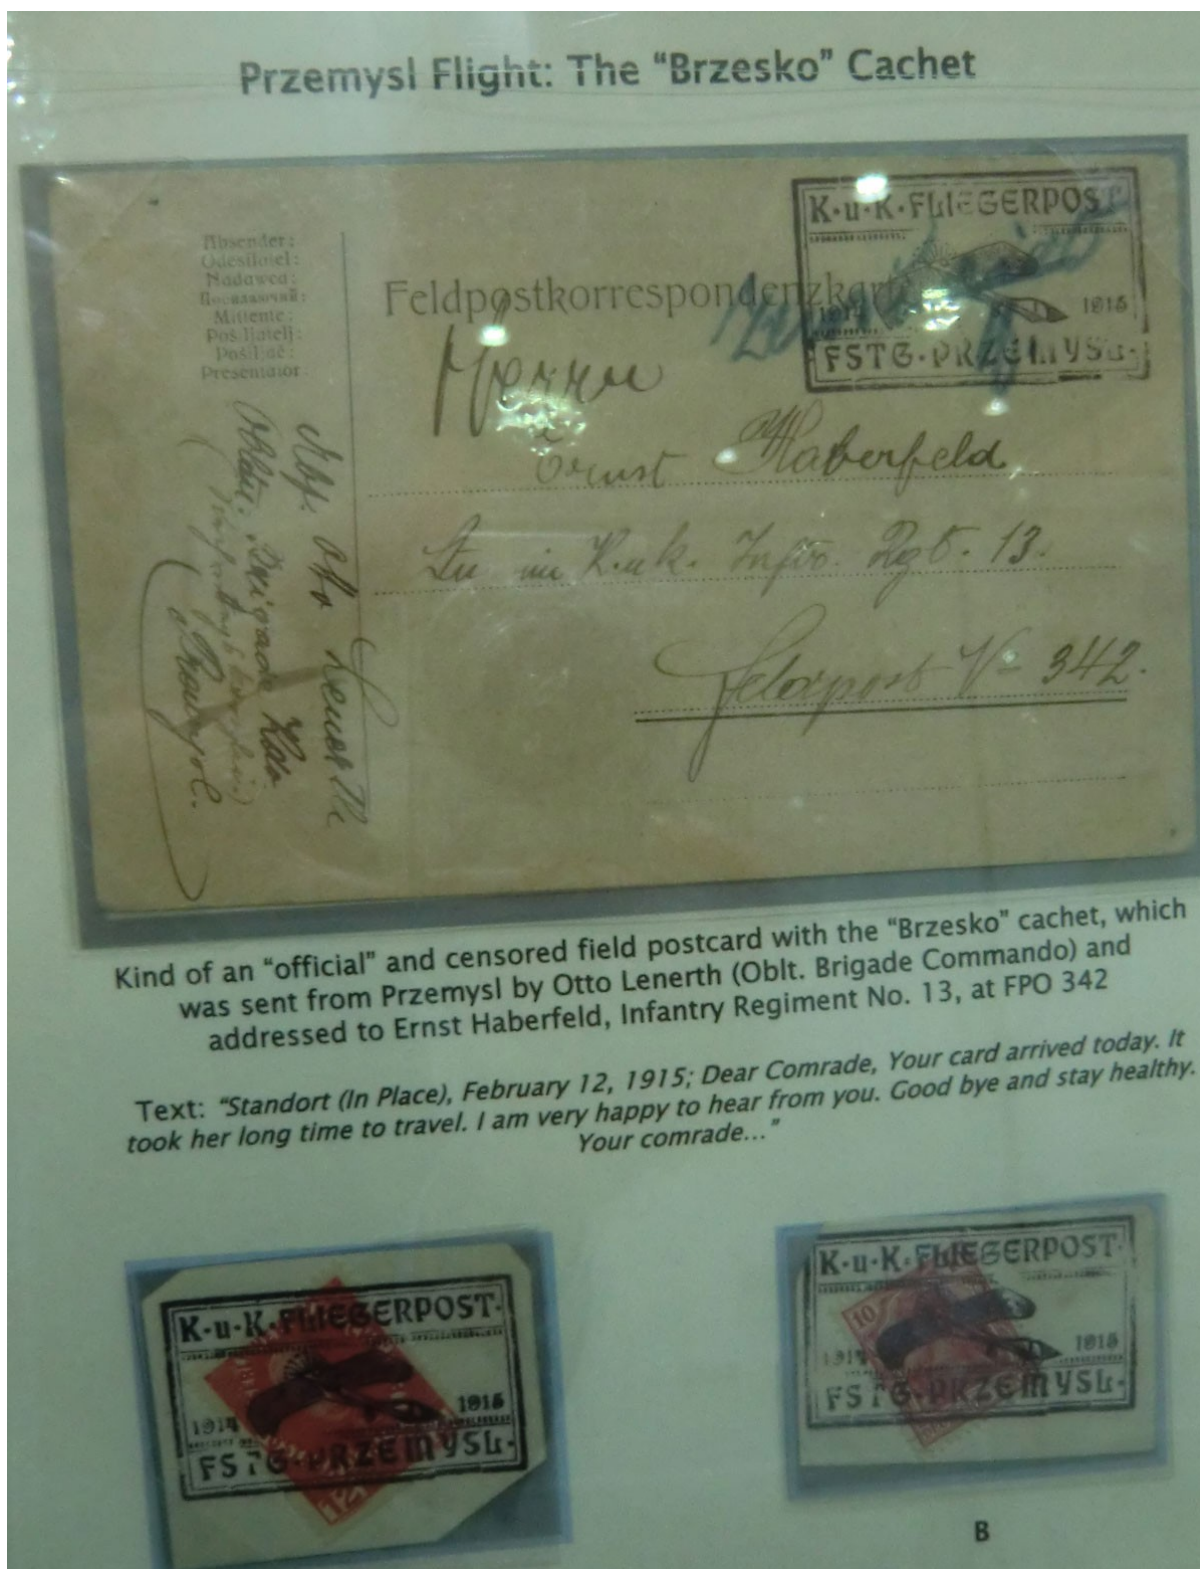 Przemysl Flight: The “Brzesko” Cachet
K·u·K·FLIEGERPOST
1914 1915
FSTG·PRZEMYSL·
Absender:
Odesílatel:
Nadawca:
Посилаючий:
Mittente:
Pošiljatelj:
Pošiljač:
Presentator:
Feldpostkorrespondenzkarte
Herrn
Ernst Haberfeld
K.u.k. Inftr. Rgt. 13.
Feldpost No 342.
Brigade Kdo
Kind of an “official” and censored field postcard with the “Brzesko” cachet, which
was sent from Przemysl by Otto Lenerth (Oblt. Brigade Commando) and
addressed to Ernst Haberfeld, Infantry Regiment No. 13, at FPO 342
Text: “Standort (In Place), February 12, 1915; Dear Comrade, Your card arrived today. It
took her long time to travel. I am very happy to hear from you. Good bye and stay healthy.
Your comrade...”
K·u·K·FLIEGERPOST·
1914 1915
FSTG·PRZEMYSL·
K·u·K·FLIEGERPOST·
10
1914 1915
FSTG·PRZEMYSL·
B